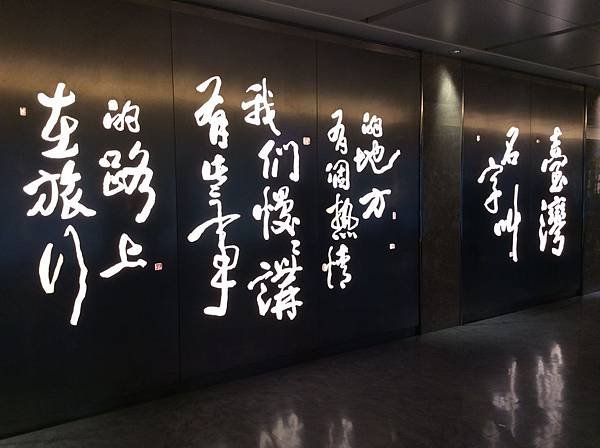 在旅行
的路上
有些事
我们慢慢講
有個热情
的地方
名字叫
臺灣